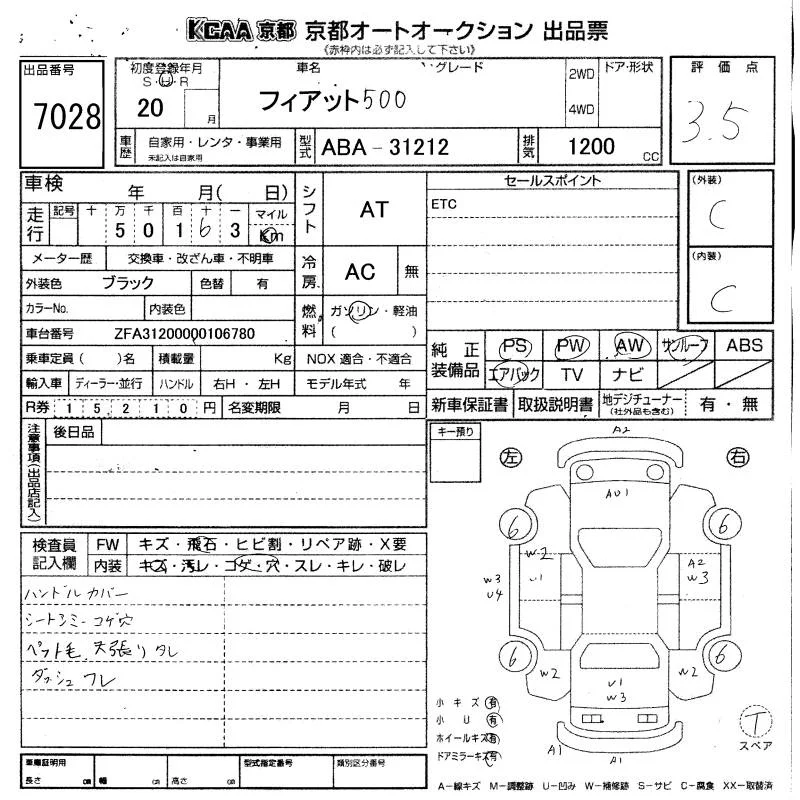 KCAA 京都 京都オートオークション 出品票
《赤枠内は必ず記入して下さい》
出品番号
7028
初度登録年月
S・H・R
20 月
車名 グレード
フィアット500
2WD
4WD
ドア・形状
評価点
3.5
車歴 自家用・レンタ・事業用
未記入は自家用
型式 ABA-31212
排気 1200 CC
車検 年 月( 日)
走行 記号 十 万 千 百 十 一 マイル
5 0 1 6 3 Km
メーター歴 交換車・改ざん車・不明車
外装色 ブラック 色替 有
カラーNo. 内装色
車台番号 ZFA31200000106780
乗車定員( )名 積載量 Kg
輸入車 ディーラー・並行 ハンドル 右H・左H
R券 15,210円 名変期限 月 日
シフト AT
冷房 AC 無
燃料 ガソリン・軽油
( )
NOX 適合・不適合
モデル年式 年
セールスポイント
ETC
(外装)
C
(内装)
C
純正装備品 PS PW AW サンルーフ ABS
エアバック TV ナビ
新車保証書 取扱説明書 地デジチューナー(社外品も含む) 有・無
注意事項(出品店記入)
後日品
キー預り
検査員記入欄
FW キズ・飛石・ヒビ割・リペア跡・X要
内装 キズ・汚レ・コゲ・穴・スレ・キレ・破レ
ハンドルカバー
シートシミー コゲ穴
ペット毛 天張りタレ
ダッシュ フレ
車庫証明用
長さ cm 幅 cm 高さ cm
型式指定番号 類別区分番号
左 右
A2
AU1
6 6
W2
W3 U1
U4
A2
W3
6 6
W2 W2
U1
W3
A1 A1
小キズ 有
小U 有
ホイールキズ 有
ドアミラーキズ 有
T
スペア
A―線キズ M―調整跡 U―凹み W―補修跡 S―サビ C―腐食 XX―取替済